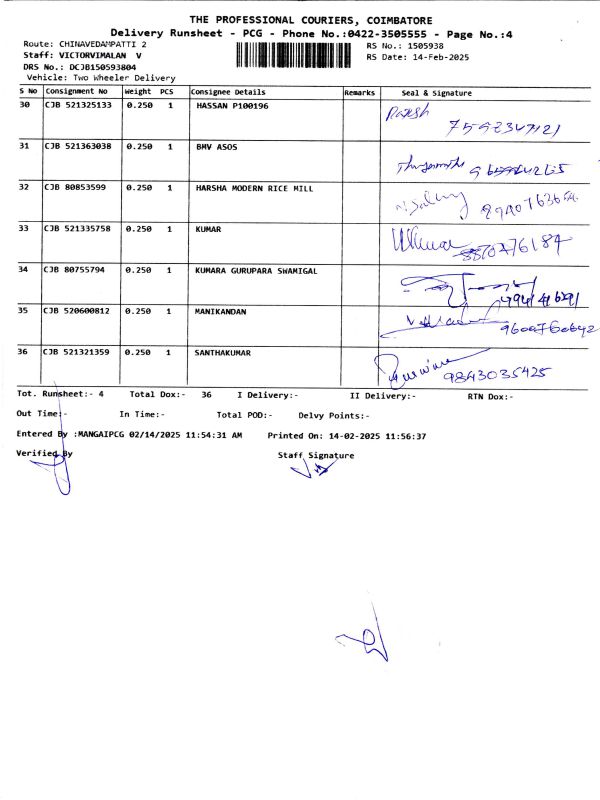 THE PROFESSIONAL COURIERS, COIMBATORE
Delivery Runsheet - PCG - Phone No.:0422-3505555 - Page No.:4
Route: CHINAVEDAMPATTI 2 RS No.: 1505938
Staff: VICTORVIMALAN V RS Date: 14-Feb-2025
DRS No.: DCJB150593804
Vehicle: Two Wheeler Delivery
S No Consignment No Weight PCS Consignee Details Remarks Seal & Signature
30 CJB 521325133 0.250 1 HASSAN P100196
31 CJB 521363038 0.250 1 BMV ASOS
32 CJB 80853599 0.250 1 HARSHA MODERN RICE MILL
33 CJB 521335758 0.250 1 KUMAR
34 CJB 80755794 0.250 1 KUMARA GURUPARA SWAMIGAL
35 CJB 520600812 0.250 1 MANIKANDAN
36 CJB 521321359 0.250 1 SANTHAKUMAR 9843035425
Tot. Runsheet:- 4 Total Dox:- 36 I Delivery:- II Delivery:- RTN Dox:-
Out Time:- In Time:- Total POD:- Delvy Points:-
Entered By :MANGAIPCG 02/14/2025 11:54:31 AM Printed On: 14-02-2025 11:56:37
Verified By Staff Signature